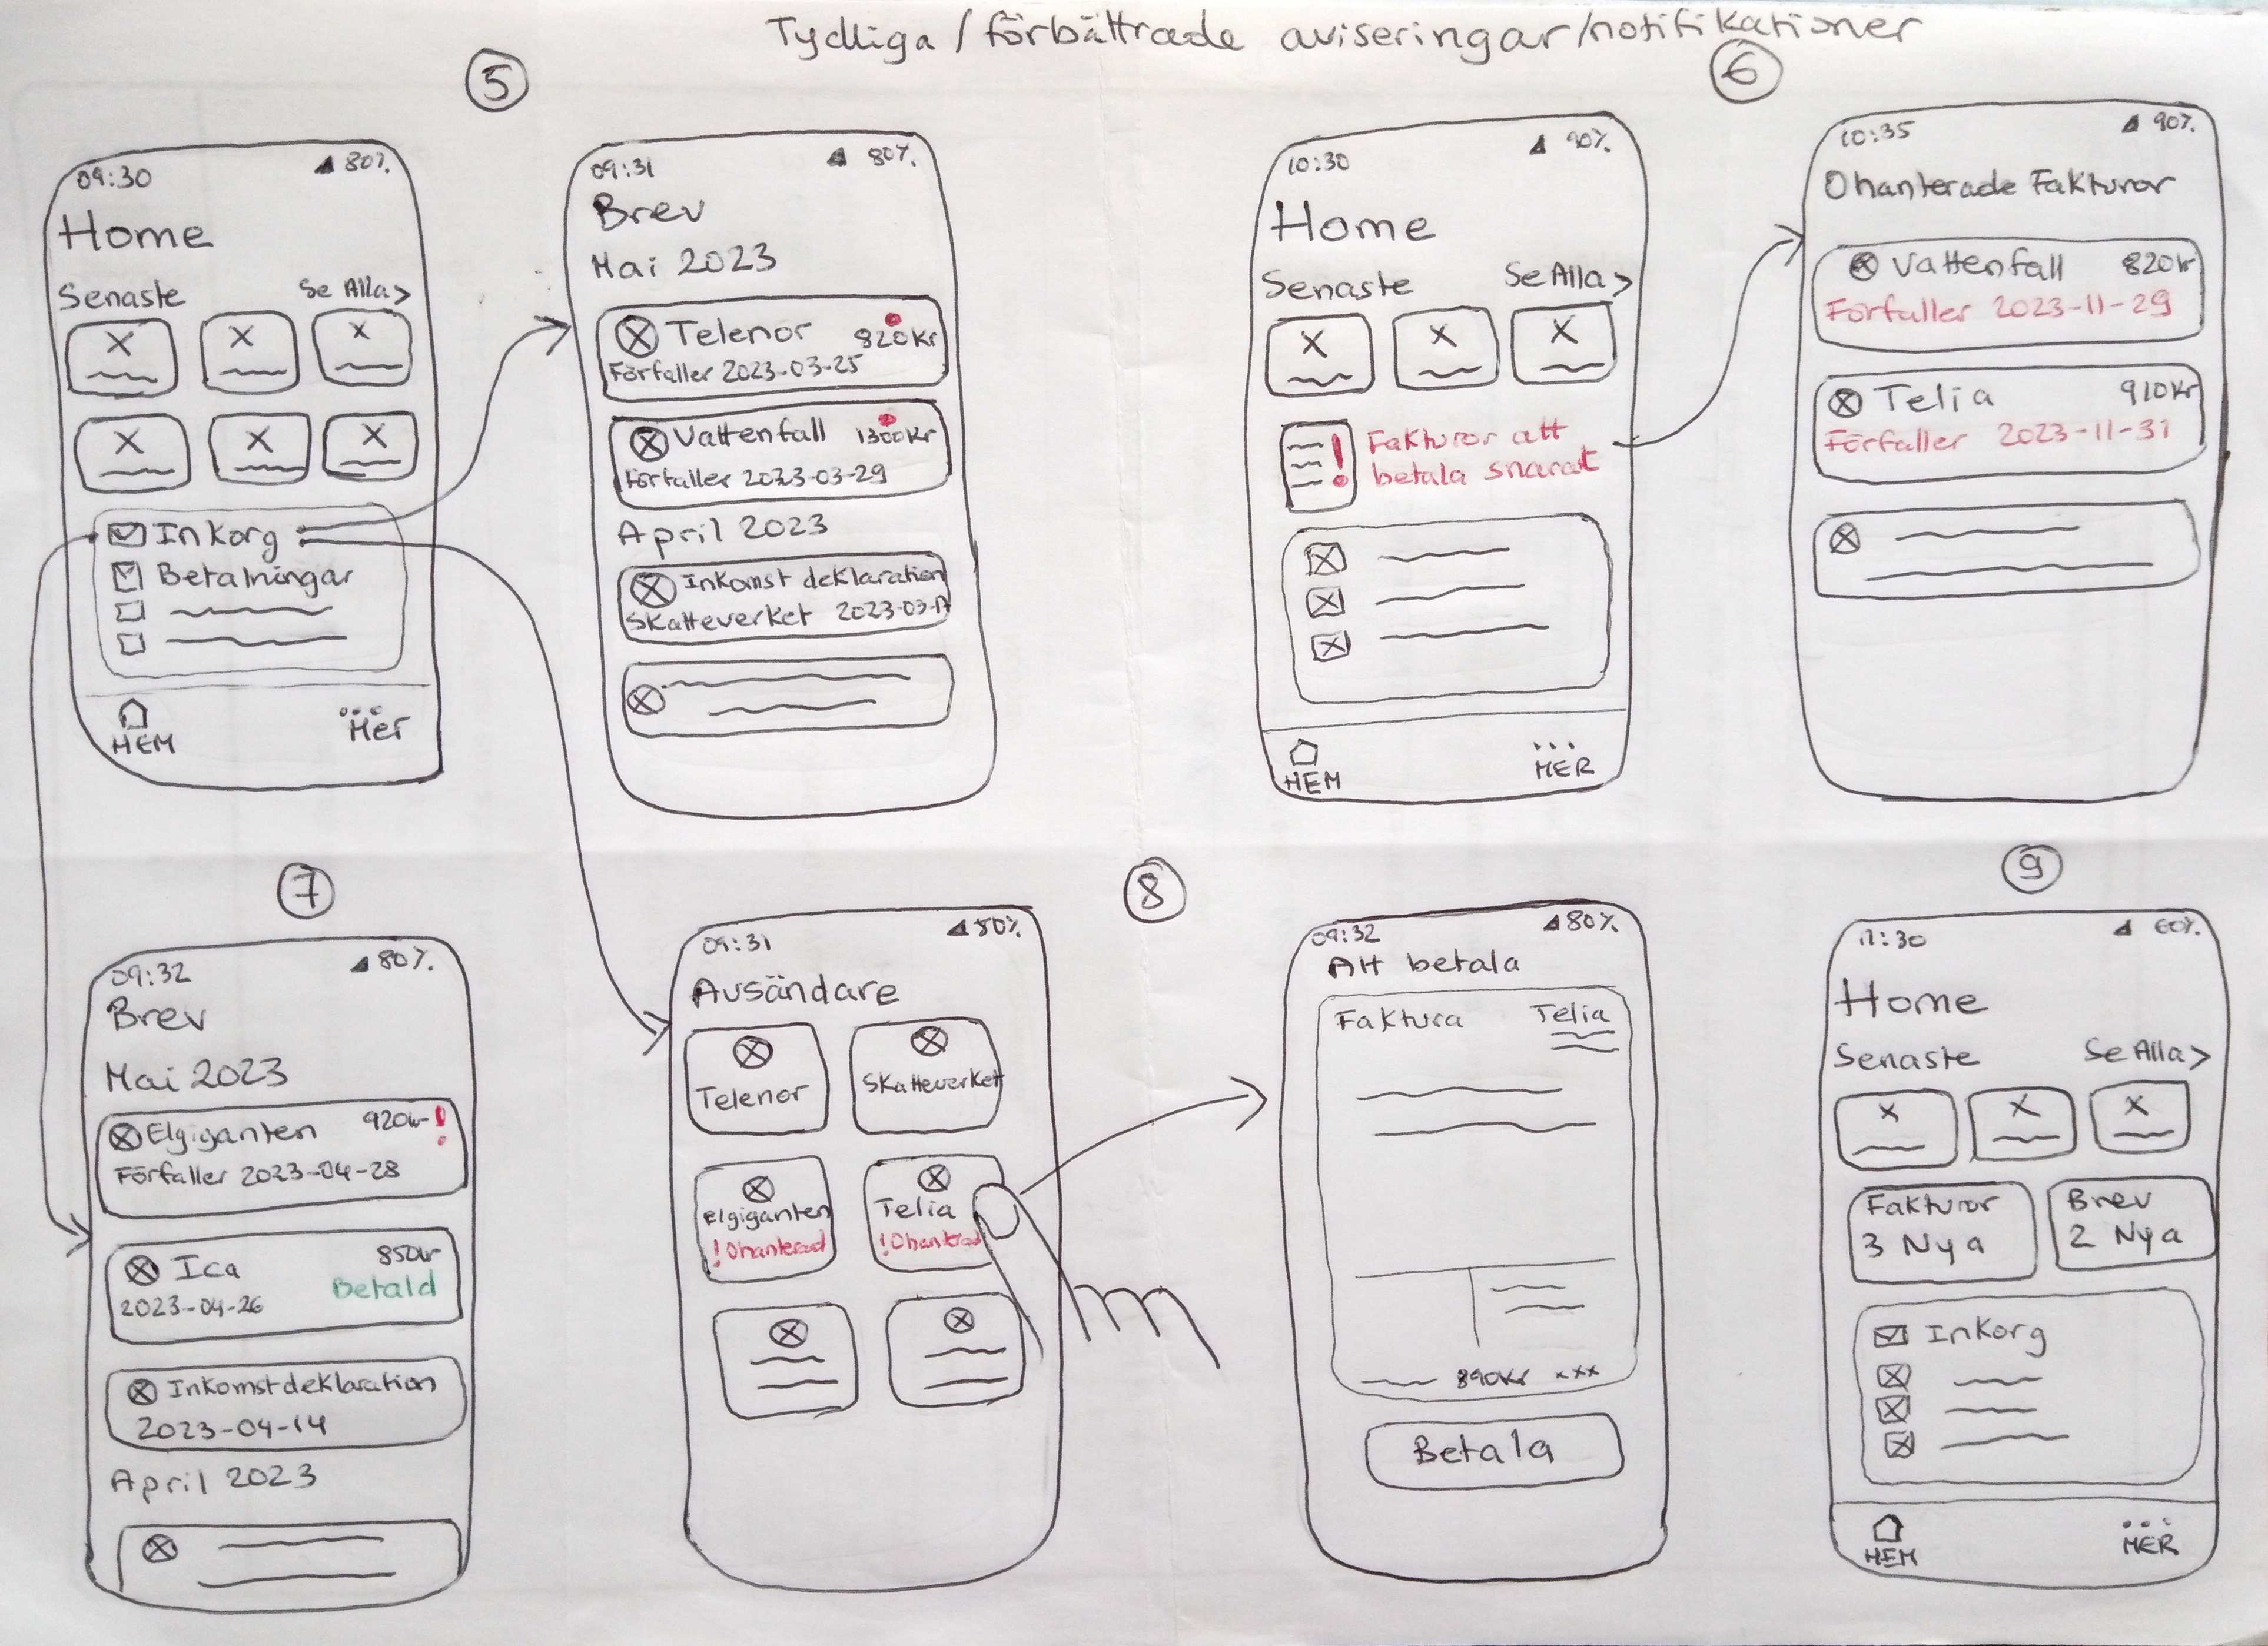 Tydliga / förbättrade aviseringar/notifikationer
5
09:30 80%
Home
Senaste Se Alla >
Inkorg
Betalningar
HEM Mer
09:31 80%
Brev
Mai 2023
Telenor 820kr
Förfaller 2023-03-25
Vattenfall 1300kr
Förfaller 2023-03-29
April 2023
Inkomst deklaration
Skatteverket 2023-03-17
6
10:30 90%
Home
Senaste Se Alla >
! Fakturor att
betala snarast
HEM MER
10:35 90%
Ohanterade Fakturor
Vattenfall 820kr
Förfaller 2023-11-29
Telia 910kr
Förfaller 2023-11-31
7
09:32 80%
Brev
Mai 2023
Elgiganten 920kr !
Förfaller 2023-04-28
Ica 850kr
2023-04-26 Betald
Inkomstdeklaration
2023-04-14
April 2023
8
09:31 80%
Avsändare
Telenor
Skatteverket
Elgiganten
! Ohanterad
Telia
! Ohanterad
09:32 80%
Att betala
Faktura Telia
890kr xxx
Betala
9
11:30 60%
Home
Senaste Se Alla >
Fakturor
3 Nya
Brev
2 Nya
Inkorg
HEM MER